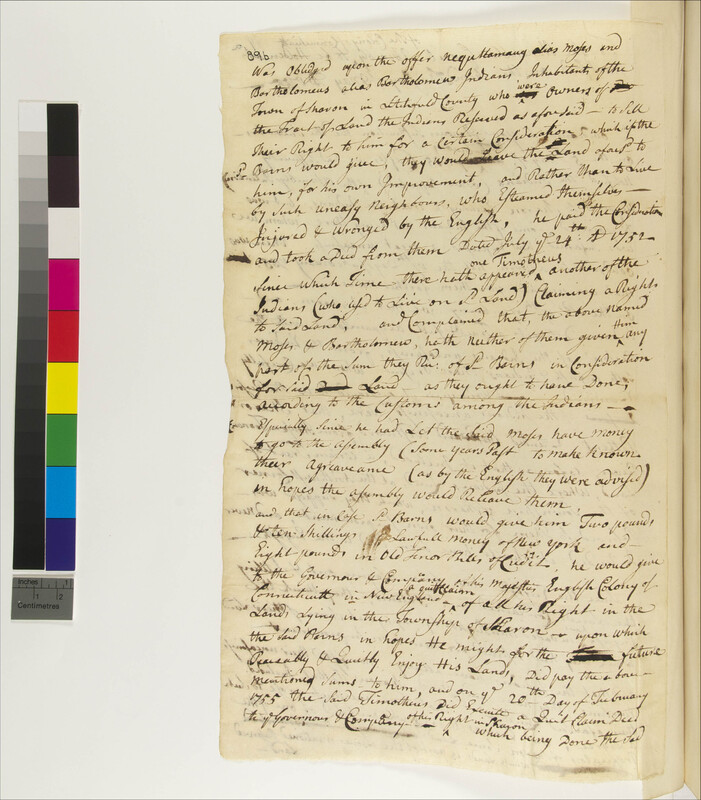 896
Was Obliged upon the offer Nequttamaug alias Moses and
Bartholomeus alias Bartholomew Indians. Inhabitants of the
Town of Sharon in Litchfield County who were Owners of
the Tract of Land the Indians Reserved as aforesaid - to Sell
Their Right to him for a Certain Consideration - which if the
Barns would give, they would Leave the Land afores.d to
him, for his own Improvement, and Rather than to Live
by Such uneasy Neighbours, who Esteemed themselves —
Injured & wronged by the English, he paid the Consideration
and took a Deed from them Dated July y.e 24th AD 1752 -
one Timotheus
Since which Time there hath appeared ^ another of the
Indians (who used to Live on s.d Land) Claiming a Right
to Said Land, and Complained that, the above named
Moses & Bartholomew, hath neither of them given him any
part of the Sum they Rec.d of s.d Barns in Consideration
for said Land as they ought to have Done,
according to the Customs among the Indians —
Especially Since he had Let the said Moses have money
to go to the assembly (Some years Past to make known
their agreavance (as by the English they were advised)
in hopes the assembly would Releave them
and that, in Case s.d Barns would give him Two pounds
& ten Shillings Lawfull money of New York and
Eight pounds in Old Tenor Bills of Credit, he would give
to the Governour & Company of his Majesties English Colony of
Connecticutt in New England a quitclaim ^ of all his Right in the
Lands Lying in the Township of Sharon - upon which
the said Barns in hopes He might for the future
Peaceably & Quietly Enjoy His Land, Did pay the above
mentioned Sums to him, and on y.e 20th Day of February
1755 the said Timotheus Did Execute a Quit Claim Deed
to y.e Governour & Company of his Right in Sharon - which being Done the said